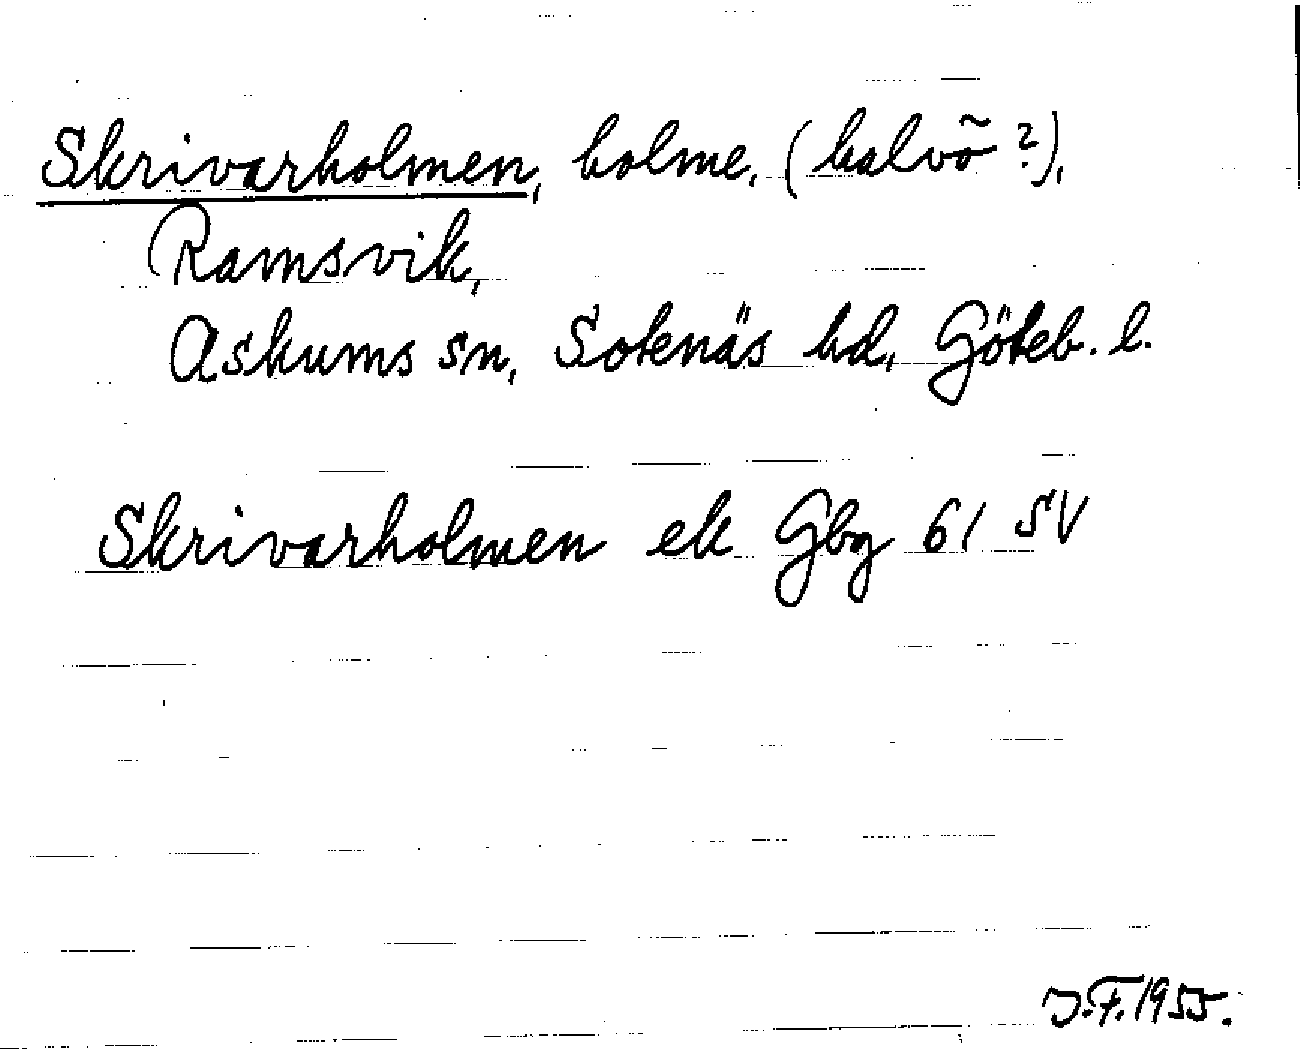 Skrivarholmen, holme, (halvö?),
Ramsvik,
Askums sn, Sotenäs hd, Göteb. l.
Skrivarholmen ek Gbg 61 SV
J.F. 1955.